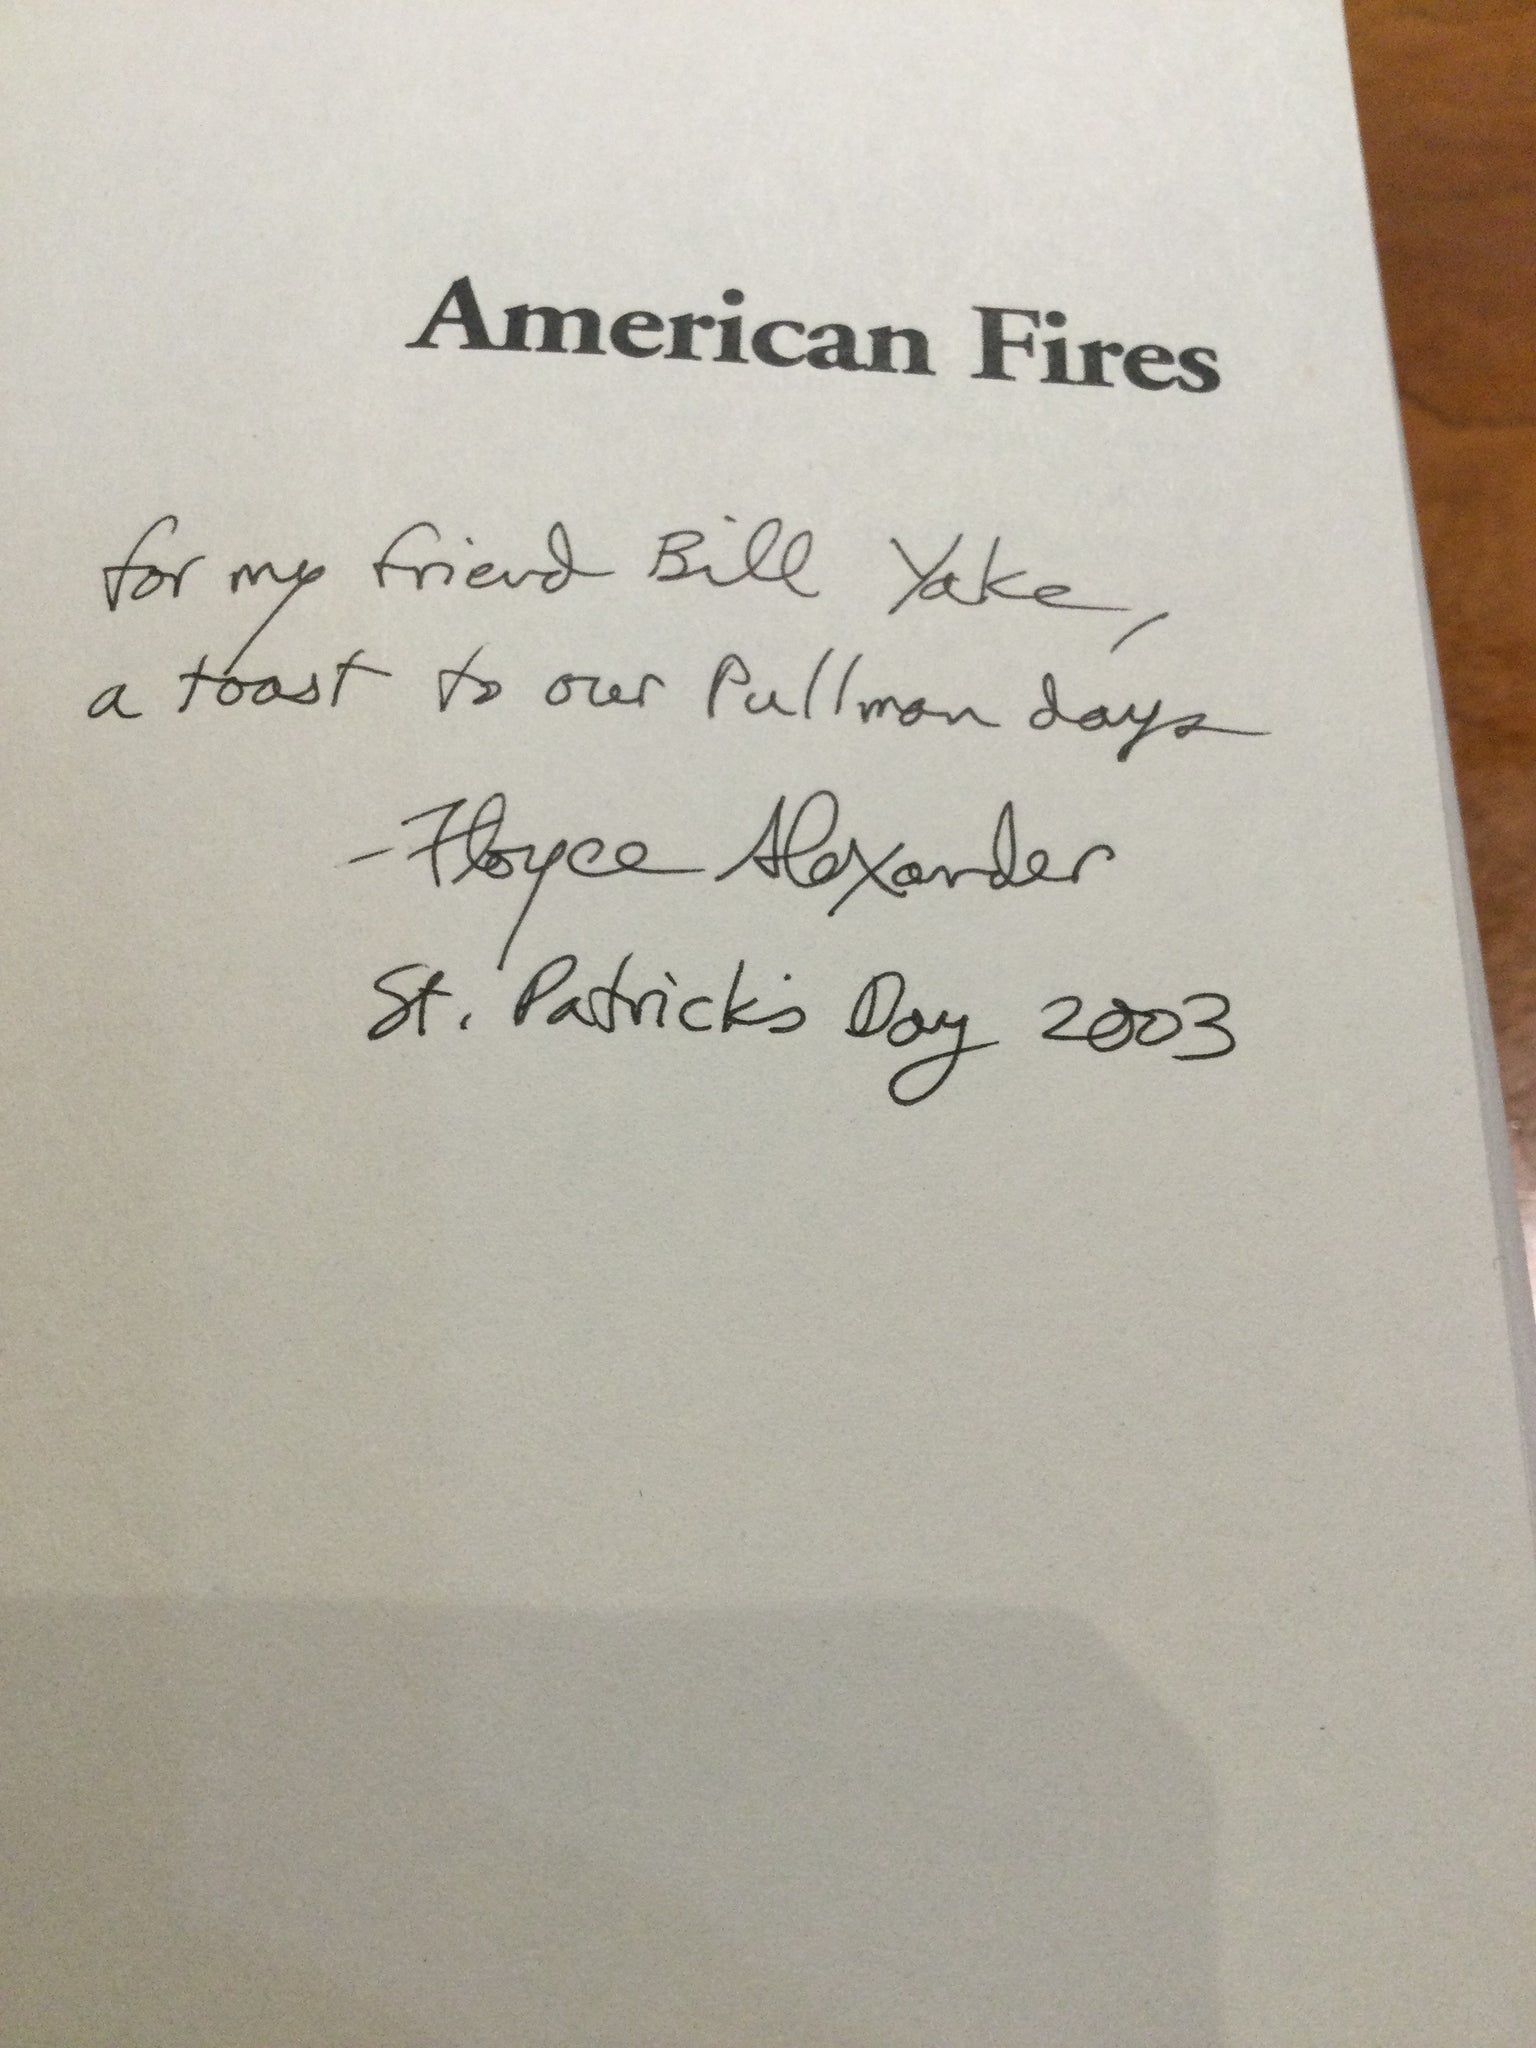 American Fires
for my friend Bill Yake,
a toast to our Pullman days
-Floyce Alexander
St. Patrick's Day 2003